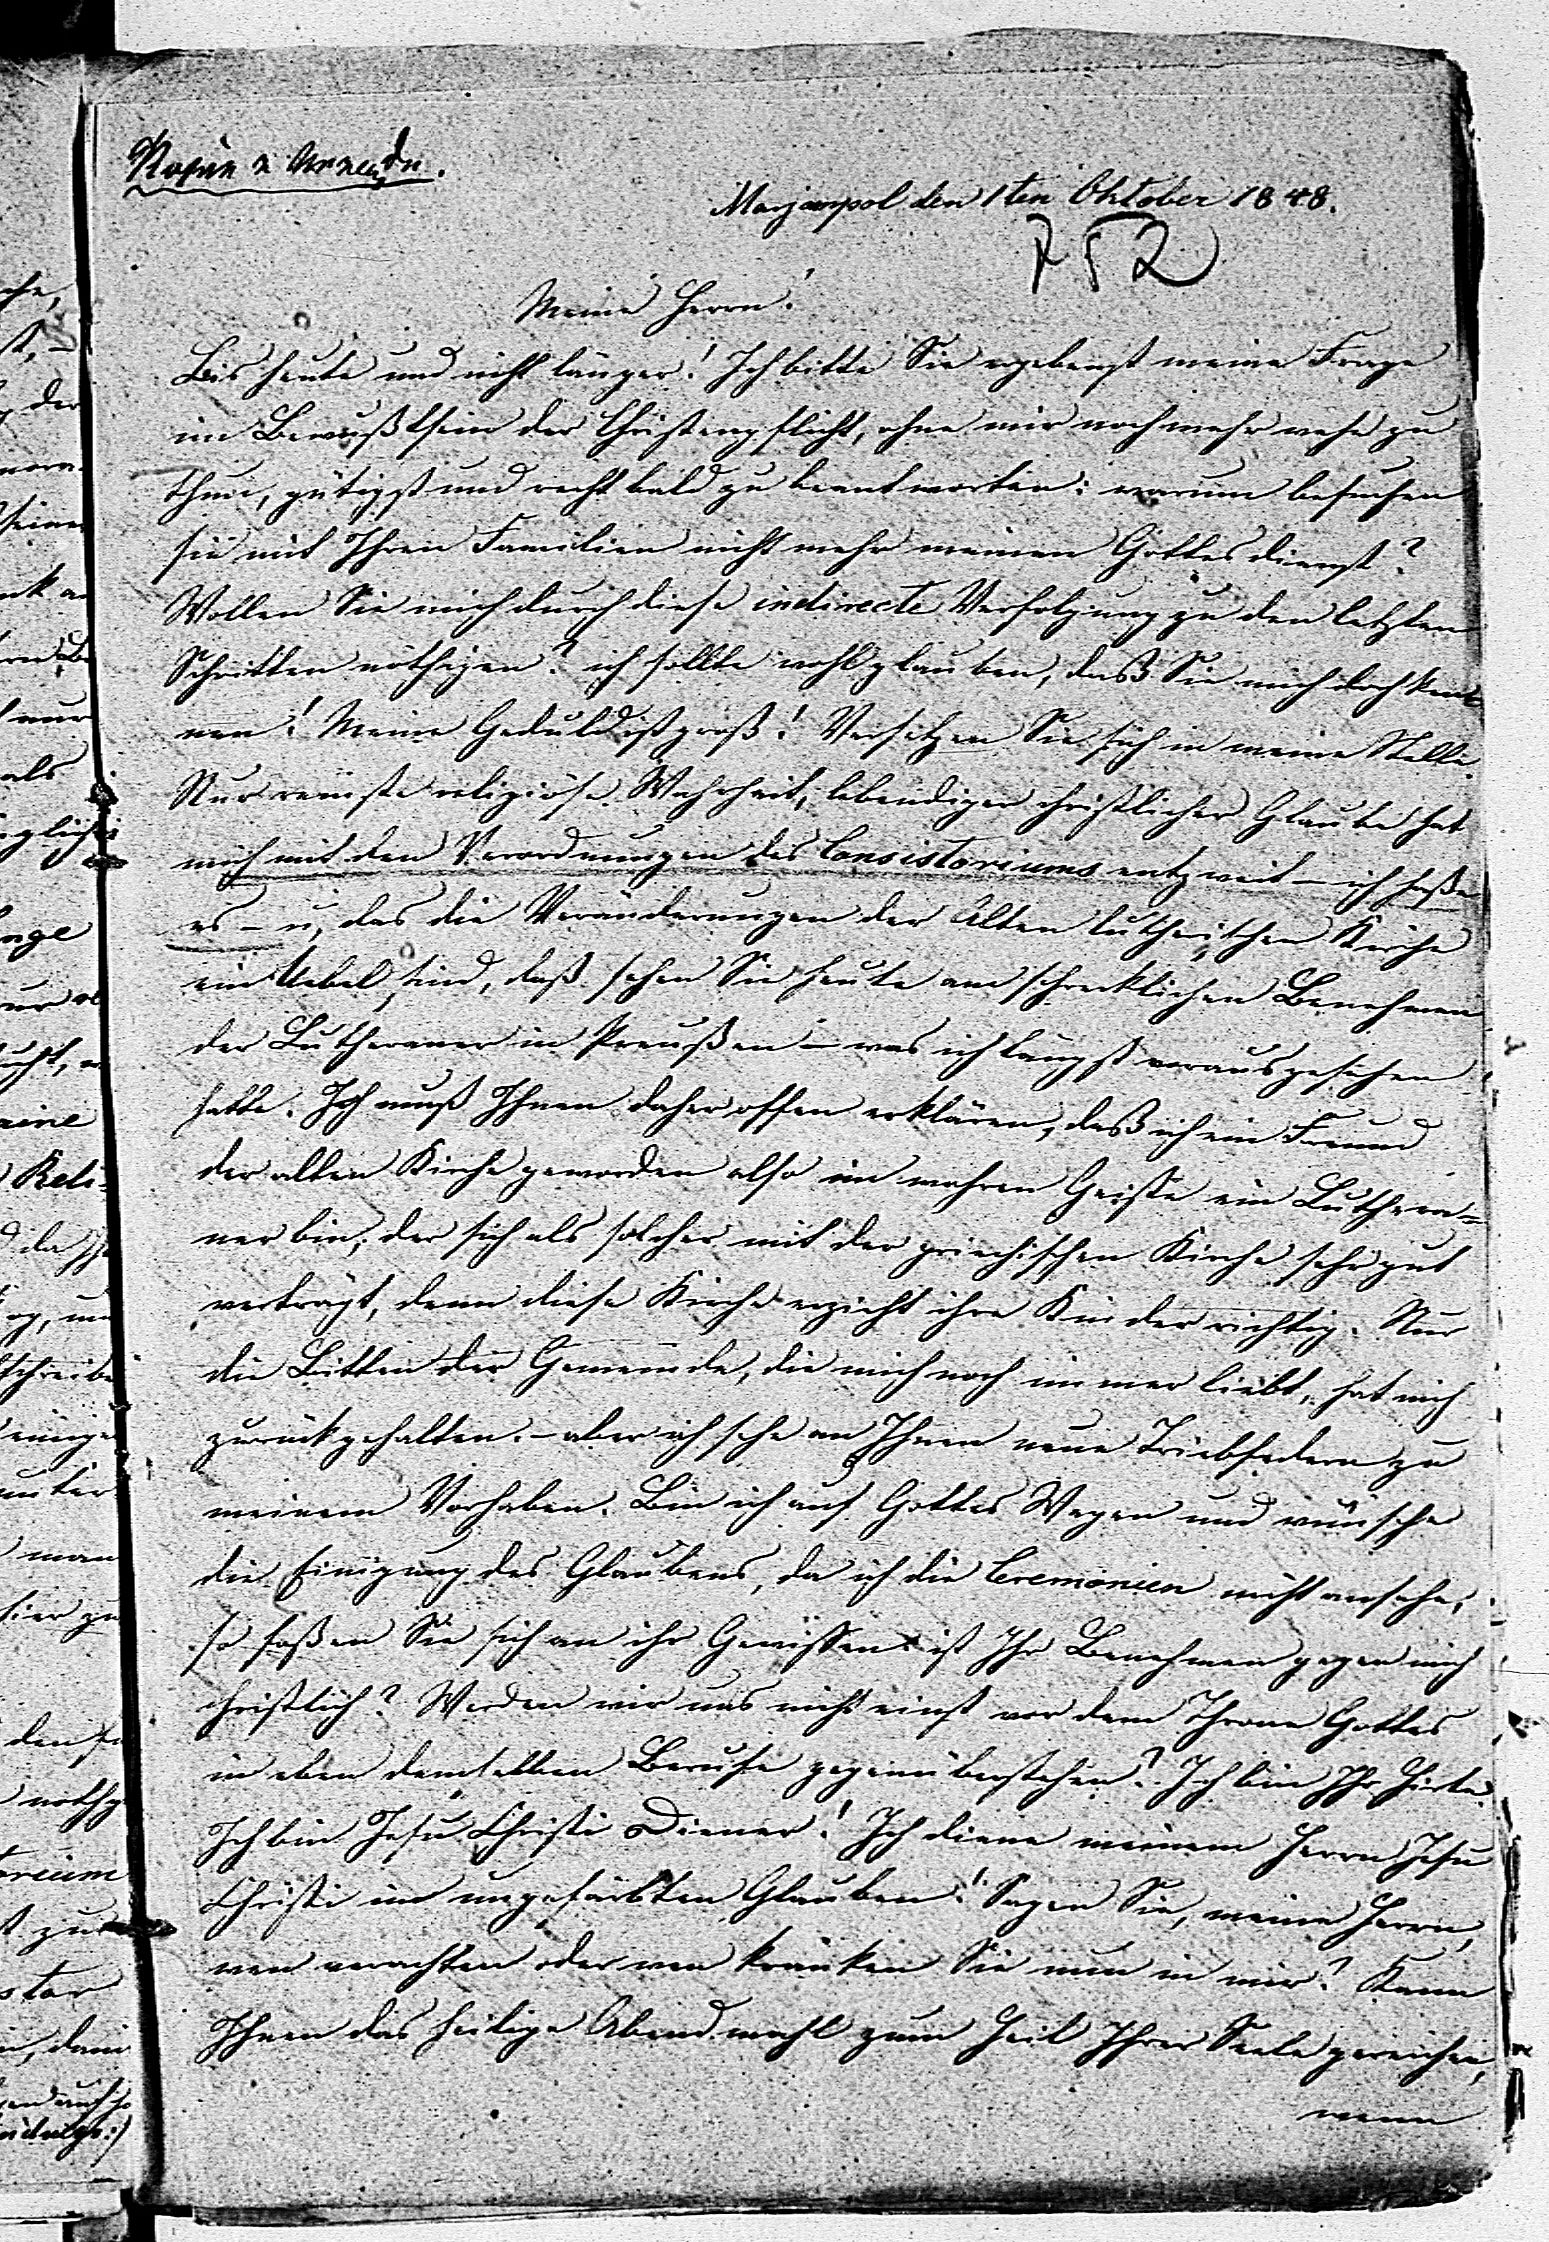 Marjampol den 1ten Oktober 1848.
752
Meine Herrn!
Bis heute und nicht länger! Ich bitte Sie ergebenst meine Frage
im Bewußtsein der Christenpflicht, ohne mir noch mehr wehe zu
thun, gütigst und recht bald zu beantworten: warum besuchen
sie mit Ihren Familien nicht mehr meinen Gottesdienst?
Wollen Sie mich durch diese indirecte Verfolgung zu den letzten
Schritten nöthigen? ich sollte wohl glauben, daß Sie mich doch ken
nen! Meine Geduld ist groß! Versetzen Sie sich in meine Stelle.
Nur reinste religiöse Wahrheit, lebendiger christlicher Glaube hat
mich mit den Verordnungen des Consistoriums entzweit – ich haße
es – u, das die Veränderungen der Alten lutherischen Kirche
ein Uebel sind, daß sehen Sie heute am schrecklichen Benehmen
der Lutheraner in Preußen – was ich längst vorausgesehen
hatte. Ich muß Ihnen daher offen erklären, daß ich ein Freund
der alten Kirche geworden also im wahren Geiste ein Luthera=
ner bin, der sich als solcher mit der griechischen Kirche sehr gut
verträgt, denn diese Kirche erzieht ihre Kinder richtig. Nur
die Bitten der Gemeinde, die mich noch immer liebt, hat mich
zurückgehalten. – aber ich sehe an Ihnen neue Triebfedern zu
meinem Vorhaben. Bin ich auf Gottes Wegen und wünsche
die Einigung des Glaubens, da ich die Ceremonien nicht ansehe,
so faßen Sie sich an ihr Gewissen: ist Ihr Benehmen gegen mich
christlich? Werden wir uns nicht einst vor dem Throne Gottes
in eben demselben Berufe gegenüberstehen? Ich bin Ihr Hirte.
Ich bin Jesu Christi Diener! Ich diene meinem Herrn Jesu
Christi im ungefärbten Glauben! Sagen Sie, meine Herrn,
wen verachten oder wen kränken Sie nun in mir? Kann
Ihnen das heilige Abendmahl zum Heil Ihrer Seele gereichen,
wenn